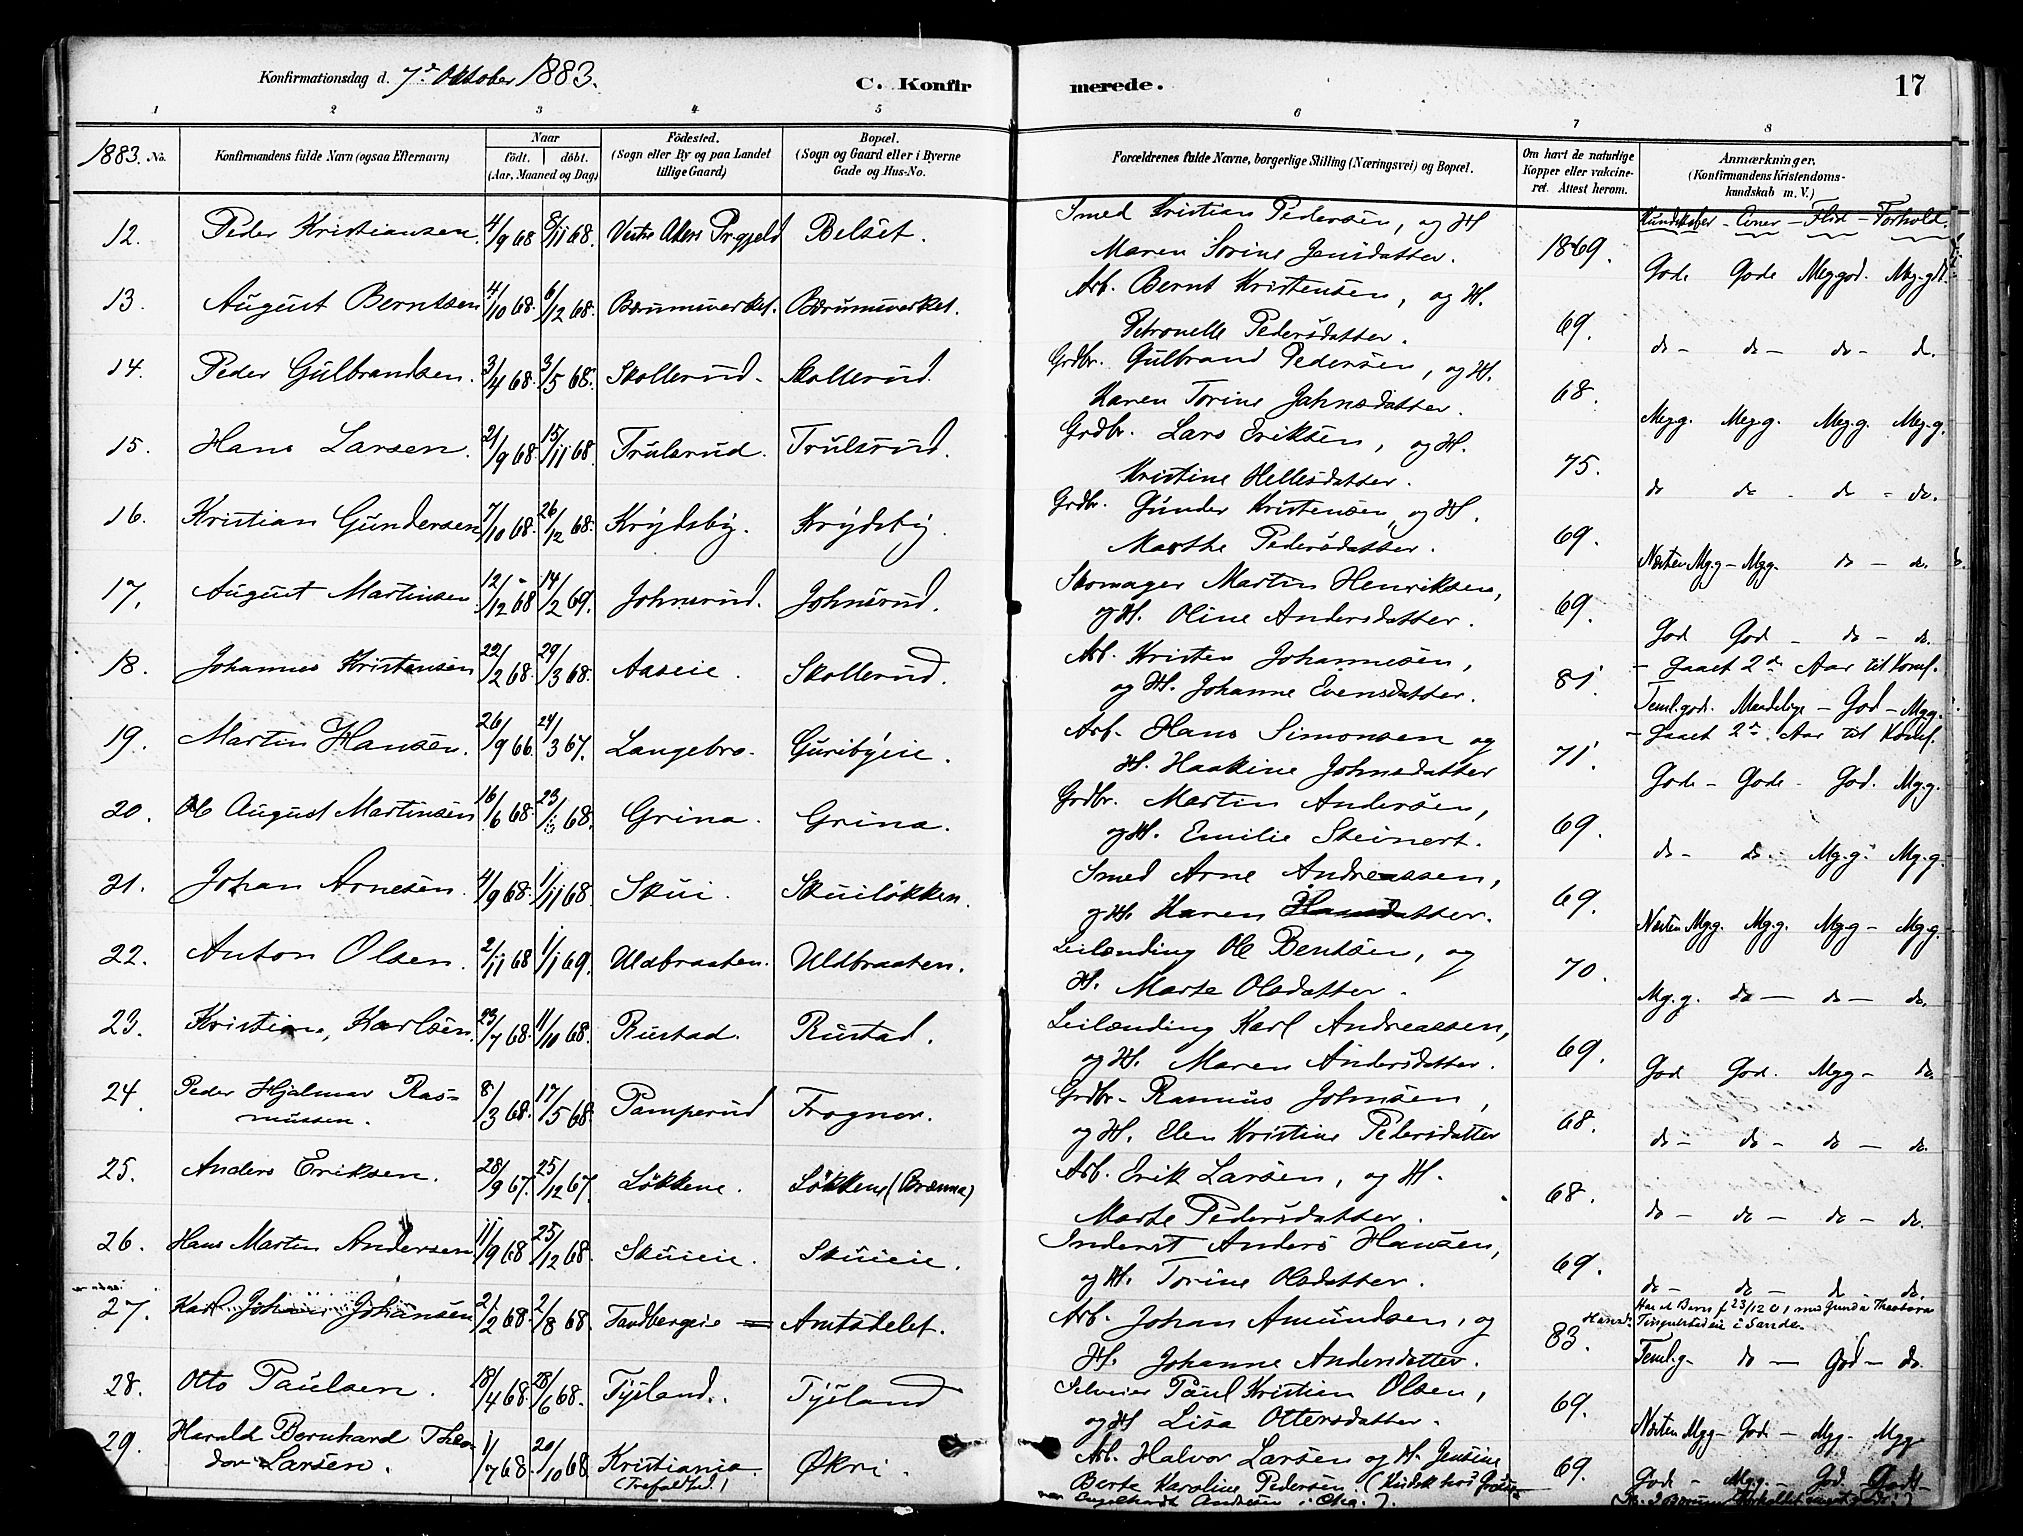 Konfirmationsdag d. 7de Oktober 1883.
C. Konfir
merede.
17
1 2 3 4 5 6 7 8
1883. No.
Konfirmandens fulde Navn (ogsaa Efternavn)
Naar
födt. döbt.
(Aar, Maaned og Dag)
Födested.
(Sogn eller By og paa Landet
tillige Gaard)
Bopæl.
(Sogn og Gaard eller i Byerne
Gade og Hus-No.
Forældrenes fulde Navne, borgerlige Stilling (Næringsvei) og Bopæl.
Om havt de naturlige
Kopper eller vakcine-
ret. Attest herom.
Anmærkninger.
(Konfirmandens Kristendoms-
kundskab m. V.)
Kundskaber - Evner - Flid - Forhold.
12. Peder Kristiansen. 4/9 68 8/11 68. Vestre Akers Prgjeld Belset.
Smed Kristian Pedersen, og H
Maren Sorine Jensdatter. 1869. Gode Gode Meg god. Mg. gdt.
13. August Berntsen 4/10 68. 6/12 68. Bærumsverket. Bærumsverket.
Arb. Bernt Kristensen, og H.
Petronelle Pedersdatter. 69. do - do - do - d.
14. Peder Gulbrandsen. 3/4 68. 3/5 68. Skollerud. Skollerud.
Grdbr. Gulbrand Pedersen, og H.
Karen Torine Jahnsdatter. 68. Meg.g. Meg.g. Meg.g. Meg.g.
15. Hans Larsen. 21/9 68. 15/11 68. Trulsrud. Trulsrud.
Grdbr. Lars Eriksen, og H.
Kristine Hellesdatter. 75. do do - do - do.
16. Kristian Gundersen 7/10 68. 26/12 68. Krydsby. Krydsby.
Grdbr. Gunder Kristensen og H.
Marthe Pedersdatter. 69. Næsten Mg.g - Mgg. do - do.
17. August Martinsen 12/12 68 14/2 69. Johnsrud. Johnsrud.
Skomager Martin Henriksen,
og H. Oline Andersdatter. 69. God God - do - do.
18. Johannes Kristensen 22/2 68. 29/3 68. Aaseie. Skollerud.
Arb. Kristen Johannesen,
og H. Johanne Evensdatter. 81. - Gaaet 2de Aar til Konf.
Teml. god. Maadelige - God - Mgg.
19. Martin Hansen. 26/9 66. 24/3 67. Langebro. Guribyeie.
Arb. Hans Simonsen og
H. Haakine Johnsdatter 71. - Gaaet 2de Aar til Konf.
Gode - Gode - God. Mg.g.
20. Ole August Martinsen 16/6 68. 23/ 68. Grina. Grina.
Grdbr. Martin Andersen,
og H. Emilie Steinert. 69. do - do. Mg.g. Mg.g.
21. Johan Arnesen. 4/9 68. 1/11 68. Skui. Skuiløkken.
Smed Arne Andreassen,
og H. Karen Hansdatter. 69. Næsten Mg.g. Mg.g. Mg.g - Mg.g.
22. Anton Olsen. 2/11 68 1/1 69. Uldbraaten. Uldbraaten.
Leilænding Ole Bentsen, og
H. Marte Olsdatter. 70. Mg.g. do - do - do.
23. Kristian Karlsen. 23/7 68. 11/10 68. Rustad. Rustad.
Leilænding Karl Andreassen,
og H. Maren Andersdatter. 69. God God. Mgg - do.
24. Peder Hjalmar Ras-
mussen. 8/3 68. 17/5 68. Pamperud Frogner.
Grdbr. Rasmus Johnsen,
og H. Elen Kristine Pedersdatter 68. do - do - do - do.
25. Anders Eriksen. 28/9 67. 25/12 67. Løkkene. Løkkene (Brænna)
Arb. Erik Larsen, og H.
Marte Pedersdatter. 68. do - do - do - do.
26. Hans Martin Andersen 11/9 68 25/12 68. Skuieie. Skuieie.
Inderst Anders Hansen,
og H. Torine Olsdatter. 69. do - do - do - do.
27. Karl Johan Johansen 2/2 68. 2/8 68. Tandbergeie = Amtsdelet.
Arb. Johan Amundsen, og
H. Johanne Andersdatter. 83. Har et Barn f 23/12 01 med Gunda Theodora
i Sande.
Teml.g - do - God - do.
28. Otto Paulsen. 18/4 68. 28/6 68. Tysland. Tysland
Selveier Paul Kristian Olsen,
og H Lisa Ottersdatter. 69. Næsten Mgg - God - Mgg. Mgg
29. Harald Bernhard Theo-
dor Larsen. 1/7 68. 20/10 68. Kristiania. (Trefoldhed.) Økri.
Arb. Halvor Larsen og H. Jensine
Berte Karoline Pedersen. 69. God - Mg.g. - God. Godt